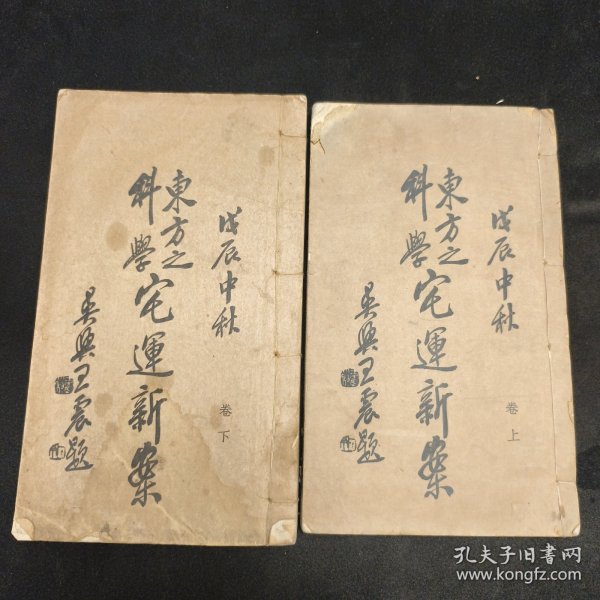 戊辰中秋
東方之
科學
宅運新案
吳興王震題
卷下
戊辰中秋
東方之
科學
宅運新案
吳興王震題
卷上
孔夫子旧书网
www.kongfz.com